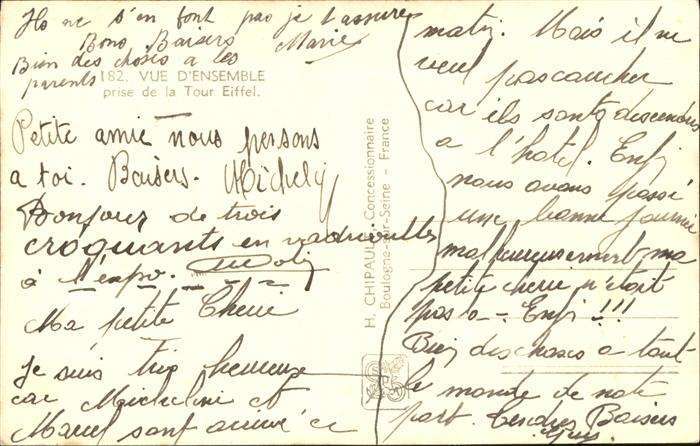 Ils ne s'en font pas je t'assure
Bons Baisers Marie
Bien des choses a tes
parents
182. VUE D'ENSEMBLE
prise de la Tour Eiffel.
Petite amie nous pensons
a toi. Baisers.
Bonjour de trois
croquants en vadrouilles
à l'expo.
Ma petite Cherie
Je suis très heureuse
car Micheline et
Marcel sont arrivés ce
H. CHIPAULT, Concessionnaire
Boulogne-sur-Seine - France
matin. Mais il ne
veul pas coucher
car ils sont descendus
a l'hotel. Enfi
nous avons passé
une bonne journee
malheureusement ma
petite cherie n'etait
pas a - Enfi !!!
Bien des choses a tout
le monde de notre
part. Baisers